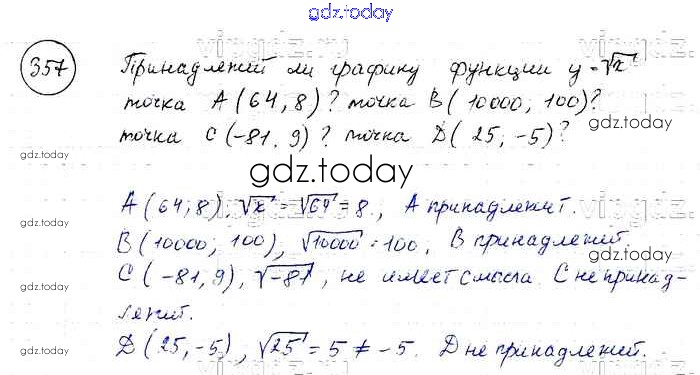 gdz.today
357 Принадлежит ли графику функции y = √x
точка A (64, 8)? точка B (10000, 100)?
точка C (-81, 9)? точка D (25, -5)?
gdz.today
A (64, 8), √x = √64 = 8, A принадлежит.
B (10000, 100), √10000 = 100, B принадлежит.
C (-81, 9), √-81, не имеет смысла. C не принад-
лежит.
D (25, -5), √25 = 5 ≠ -5. D не принадлежит.